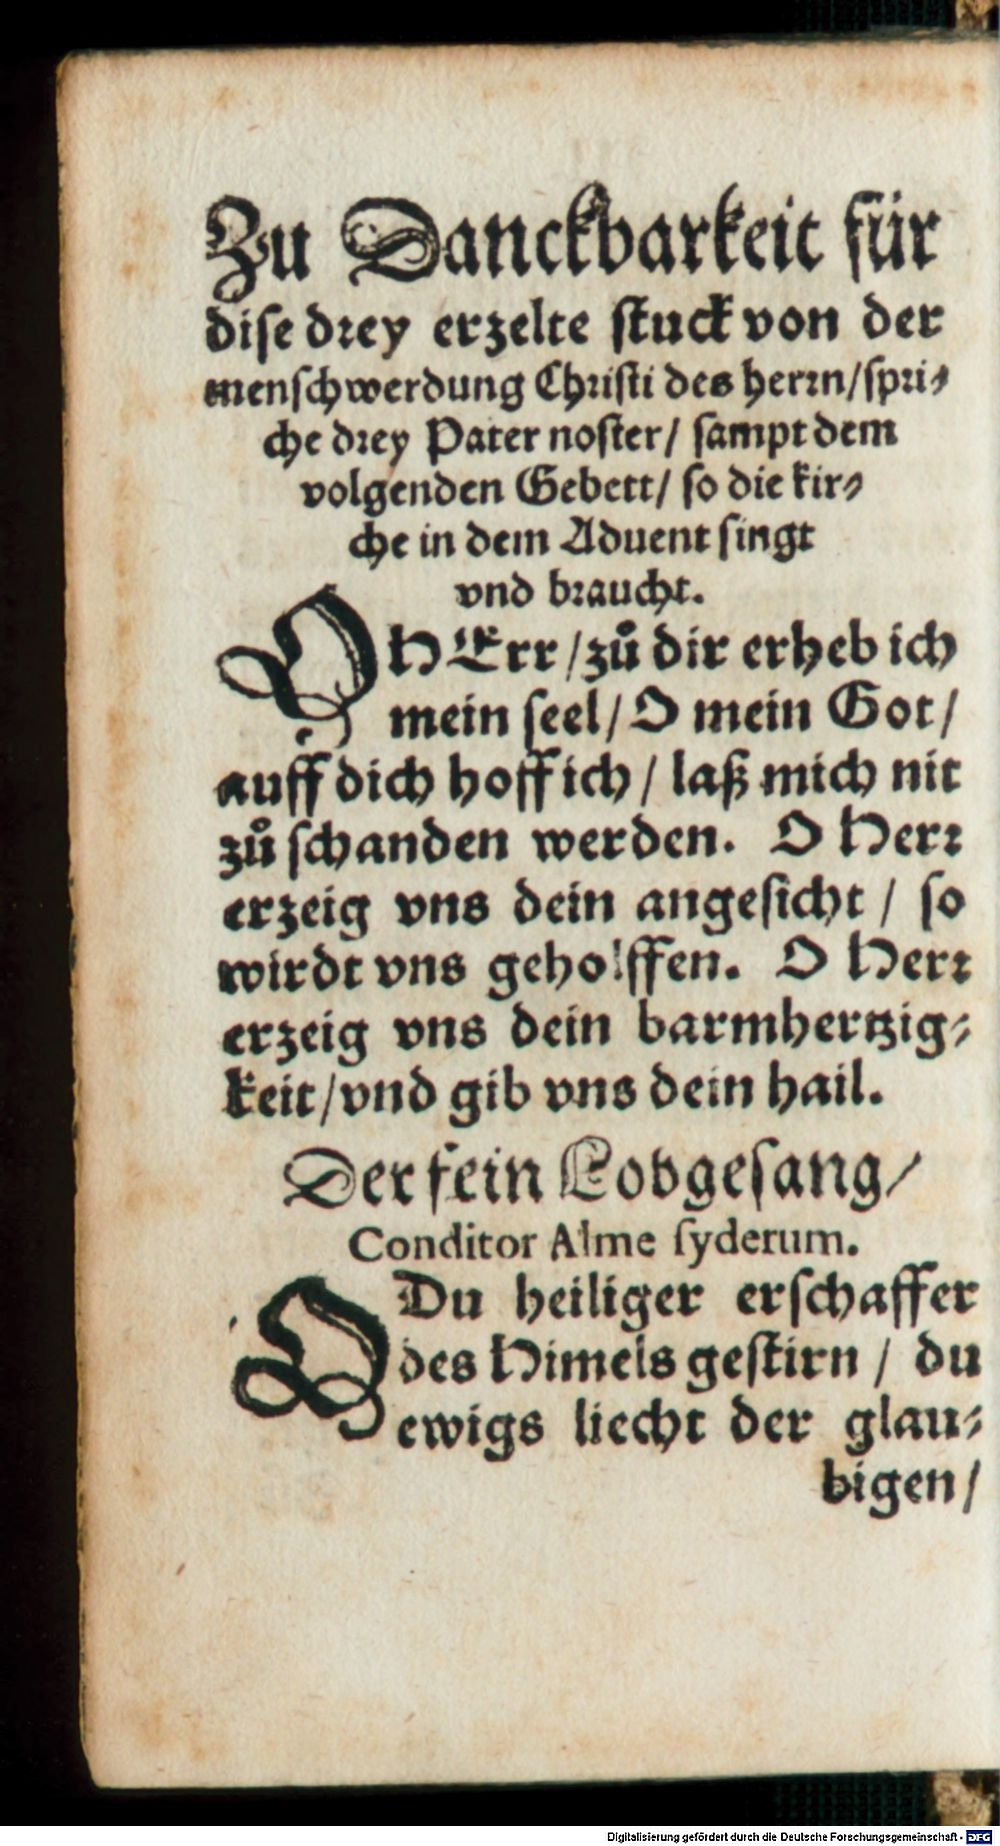 Zu Danckbarkeit für
dise drey erzelte stuck von der
menschwerdung Christi des herrn/spri⸗
che drey Pater noster/ sampt dem
volgenden Gebett/ so die kir⸗
che in dem Aduent singt
vnd braucht.
O HErr/zů dir erheb ich
mein seel/ O mein Got/
auff dich hoff ich/ laß mich nit
zů schanden werden. O Herr
erzeig vns dein angesicht/ so
wirdt vns geholffen. O Herr
erzeig vns dein barmhertzig⸗
keit/vnd gib vns dein hail.
Der fein Lobgesang/
Conditor Alme syderum.
O Du heiliger erschaffer
des Himels gestirn/ du
ewigs liecht der glau⸗
bigen/
Digitalisierung gefördert durch die Deutsche Forschungsgemeinschaft - DFG